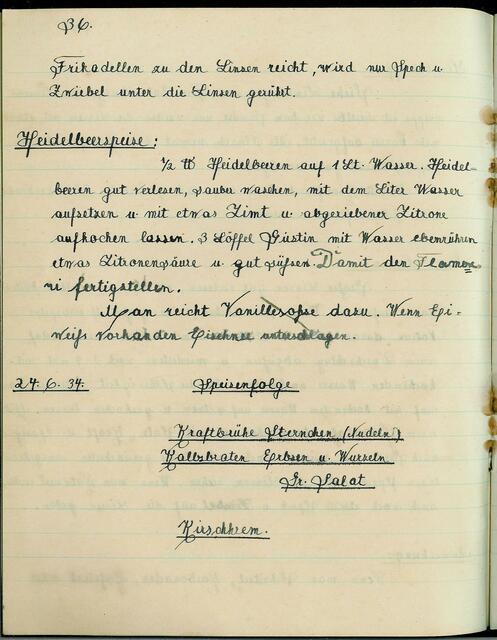 36.
Frikadellen zu den Linsen reicht, wird nur Speck u.
Zwiebel unter die Linsen gerührt.
Heidelbeerspeise:
1/2 ℔ Heidelbeeren auf 1 Lt. Wasser. Heidel-
beeren gut verlesen, sauber waschen, mit dem Liter Wasser
aufsetzen u. mit etwas Zimt u. abgeriebener Zitrone
aufkochen lassen. 3 Löffel Gustin mit Wasser ebenrühren
etwas Zitronensäure u. gut süßsen. Damit den Flamme-
ri fertigstellen.
Man reicht Vanillesoße dazu. Wenn Ei-
weiß vorhanden Eischnee unterschlagen.
24.6.34. Speisenfolge
Kraftbrühe Sternchen (Nudeln)
Kalbsbraten Erbsen u. Wurzeln
Gr. Salat
Kirschkrem.